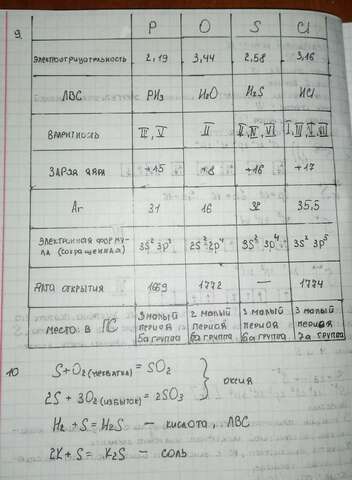 9. P O S Cl
Электроотрицательность 2,19 3,44 2,58 3,16
ЛВС PH₃ H₂O H₂S HCl
Валентность III, V II II, IV, VI I, III, V, VII
Заряд ядра +15 +8 +16 +17
Ar 31 16 32 35,5
Электронная форму-
ла (сокращенная) 3S² 3p³ 2S² 2p⁴ 3S² 3p⁴ 3S² 3p⁵
Дата открытия 1669 1772 — 1774
Место в ПС 3 малый период 5а группа 2 малый период 6а группа 3 малый период 6а группа 3 малый период 7а группа
10 S + O₂ (нехватка) = SO₂
2S + 3O₂ (избыток) = 2SO₃ } оксид
H₂ + S = H₂S — кислота, ЛВС
2K + S = K₂S — соль